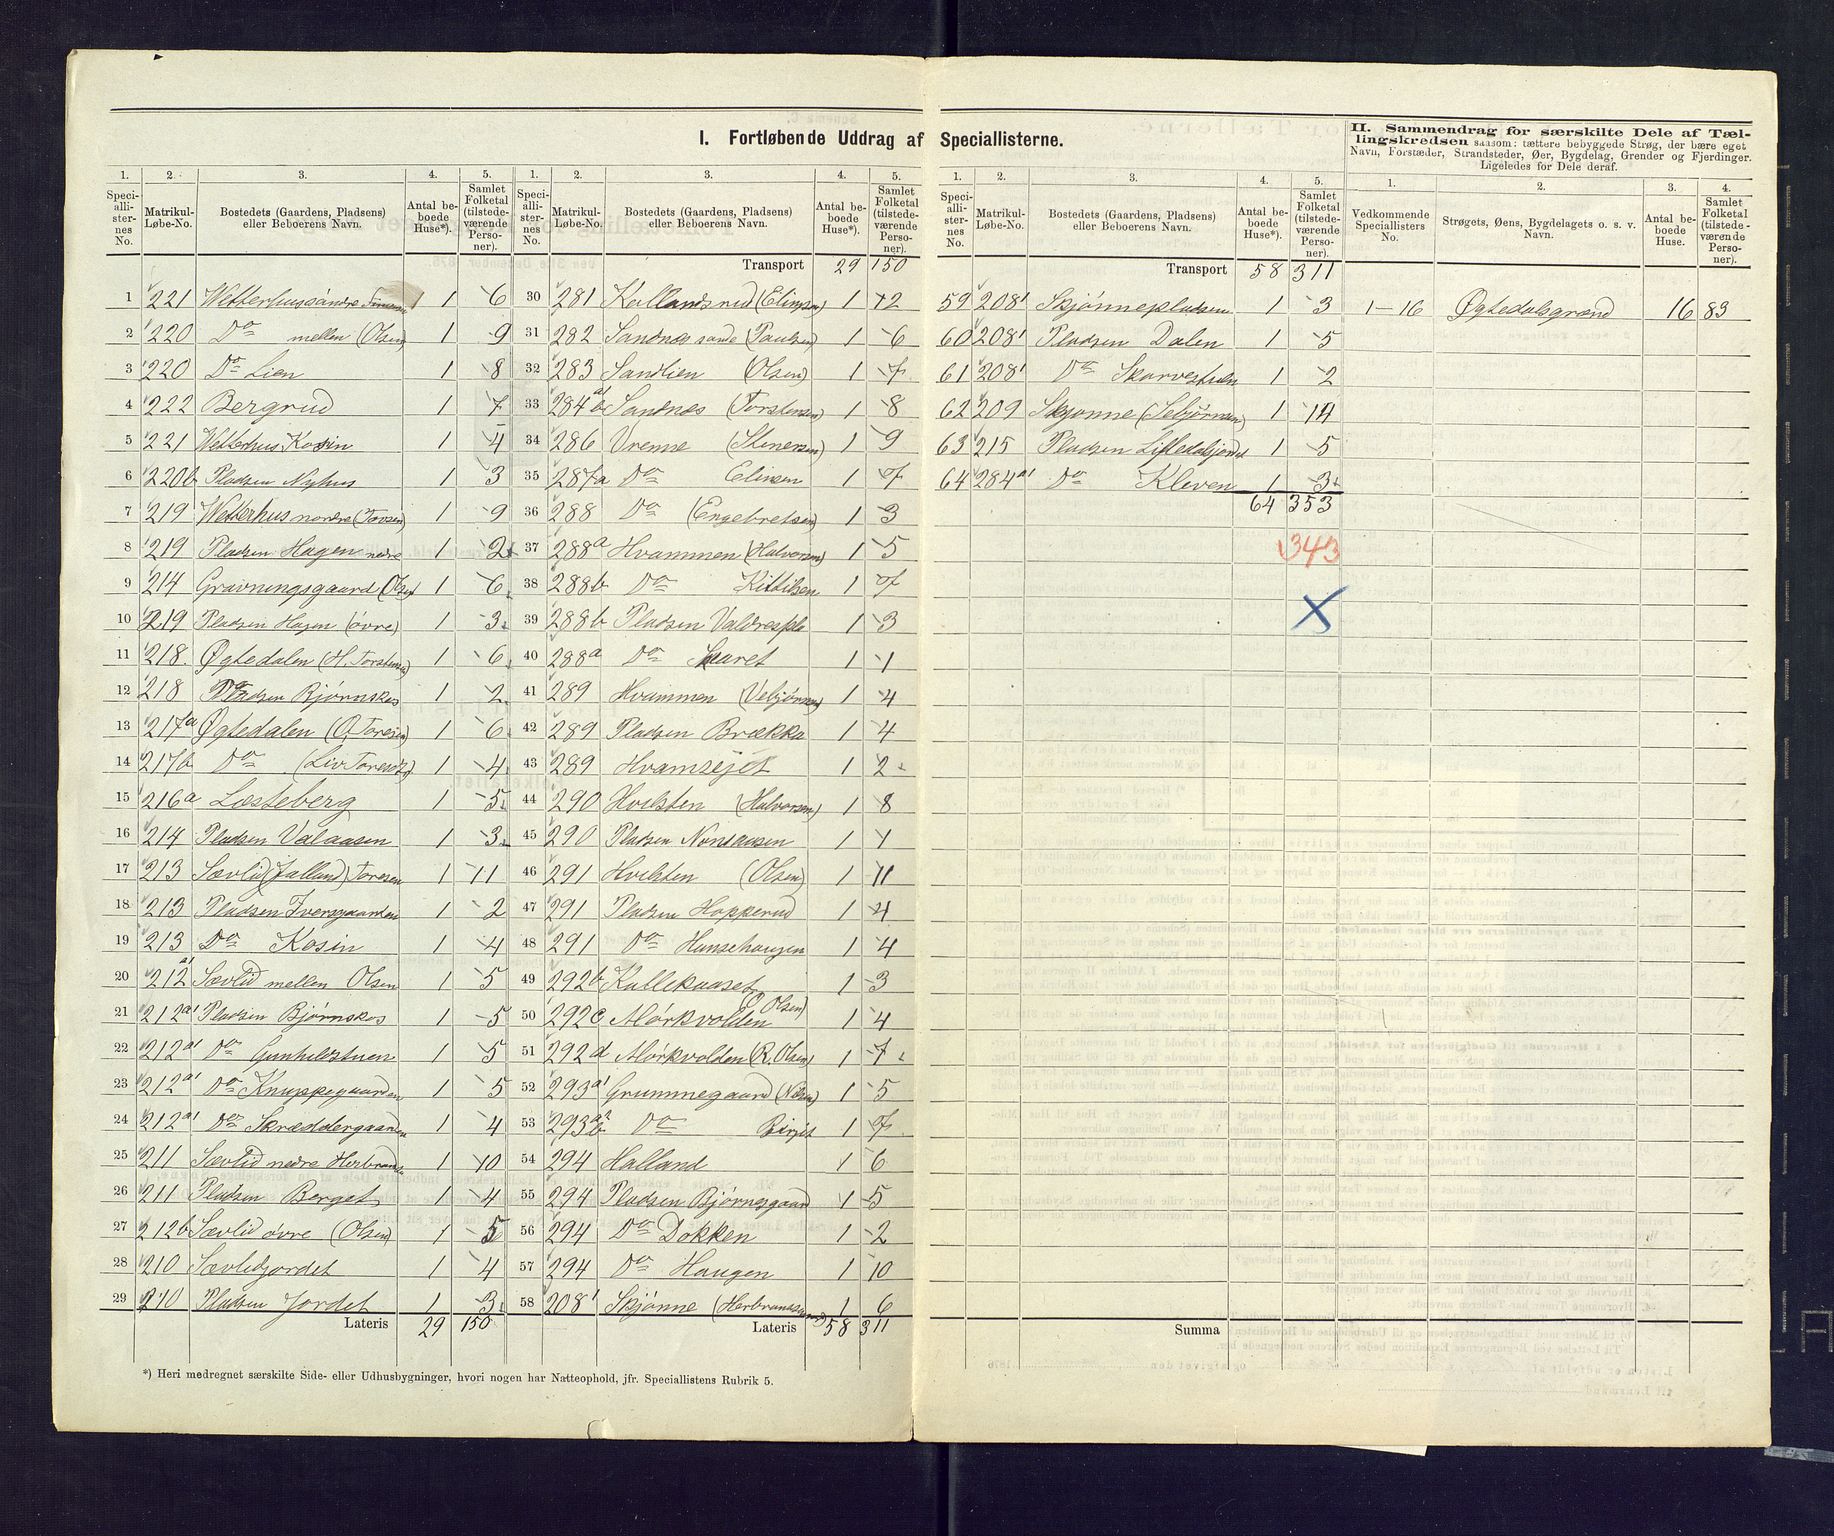 I. Fortløbende Uddrag af Speciallisterne.
1. 2. 3. 4. 5.
Speciallisternes No. Matrikul-Løbe-No. Bostedets (Gaardens, Pladsens) eller Beboerens Navn. Antal beboede Huse*). Samlet Folketal (tilstedeværende Personer).
1 221 Wetterhus søndre 1 6
2 220 Do mellen (Olsen) 1 9
3 220 Do Lien 1 8
4 222 Bergrud 1 7
5 221 Wetterhus Kosin 1 4
6 220b Pladsen Nyhus 1 3
7 219 Wetterhus nordre (Tovsen) 1 9
8 219 Pladsen Hagen nedre 1 2
9 214 Gravningsgaard (Olsen) 1 6
10 219 Pladsen Hagen (øvre) 1 3
11 218 Øgtedalen (H. Torstensen) 1 6
12 218 Pladsen Bjørnskos 1 2
13 217a Øgtedalen (O. Toresen) 1 6
14 217b Do (Liv Toresdtr) 1 4
15 216a Læsteberg 1 5
16 214 Pladsen Valaasen 1 3
17 213 Sævlid (Jallund) Toresen 1 11
18 213 Pladsen Iversgaarden 1 2
19 213 Do Kosin 1 4
20 212a1 Sævlid mellen Olsen 1 5
21 212a1 Pladsen Bjørnskos 1 5
22 212a1 Do Gunhilstuen 1 5
23 212a1 Do Knuppegaarden 1 5
24 212a1 Do Skræddergaarden 1 4
25 211 Sævlid nedre Herbrandsen 1 10
26 211 Pladsen Berget 1 4
27 212b Sævlid øvre (Olsen) 1 5
28 210 Sævlidjordet 1 4
29 210 Pladsen Jordet 1 3
Lateris 29 150
1. 2. 3. 4. 5.
Speciallisternes No. Matrikul-Løbe-No. Bostedets (Gaardens, Pladsens) eller Beboerens Navn. Antal beboede Huse*). Samlet Folketal (tilstedeværende Personer).
Transport 29 150
30 281 Kallandsrud (Elingsen) 1 12
31 282 Sandnes søndre (Paulsen) 1 6
32 283 Sandlien (Olsen) 1 7
33 284a1b Sandnes (Torstensen) 1 8
34 286 Vrenne (Stenersen) 1 9
35 287a Do Elinsen 1 7
36 288 Do (Engebretsen) 1 3
37 288a Hvammen (Halvorsen) 1 5
38 288b Do Kittilsen 1 7
39 288b Pladsen Valdrespla 1 3
40 288a Do Skaret 1 1
41 289 Hvammen (Vebjørnsen) 1 4
42 289 Pladsen Brækka 1 4
43 289 Hvamsejet 1 2
44 290 Hvilsten (Halvorsen) 1 8
45 290 Pladsen Nonsaasen 1 1
46 291 Hvilsten (Olsen) 1 11
47 291 Pladsen Hopperud 1 4
48 291 Do Hunsehaugen 1 4
49 292b Kallekaaset 1 3
50 292c Mørkvolden (O Olsen) 1 4
51 292d Mørkvolden (R. Olsen) 1 7
52 293a1 Grummegaard (Nilsen) 1 5
53 293a2b Do Birgit 1 7
54 294 Halland 1 6
55 294 Pladsen Bjørnegaard 1 5
56 294 Do Dokken 1 2
57 294 Do Haugen 1 10
58 2081 Skjønne (Herbrandsen) 1 6
Lateris 58 311
*) Heri medregnet særskilte Side- eller Udhusbygninger, hvori nogen har Natteophold, jfr. Speciallistens Rubrik 5.
1. 2. 3. 4. 5.
Speciallisternes No. Matrikul-Løbe-No. Bostedets (Gaardens, Pladsens) eller Beboerens Navn. Antal beboede Huse*). Samlet Folketal (tilstedeværende Personer).
Transport 58 311
59 2081 Skjønnepladsen 1 3
60 2081 Pladsen Dalen 1 5
61 2081 Do Skarvestuen 1 2
62 209 Skjønne (Sebjørnsen) 1 14
63 215 Pladsen Lilledalsjordet 1 5
64 284a1 Do Kleven 1 3
64 353
343
X
Summa
II. Sammendrag for særskilte Dele af Tællingskredsen saasom: tættere bebyggede Strøg, der bære eget Navn, Forstæder, Strandsteder, Øer, Bygdelag, Grender og Fjerdinger. Ligeledes for Dele deraf.
1. 2. 3. 4.
Vedkommende Speciallisters No. Strøgets, Øens, Bygdelagets o. s. v. Navn. Antal beboede Huse. Samlet Folketal (tilstedeværende Personer).
1-16 Øgtedalsgrænd 16 83